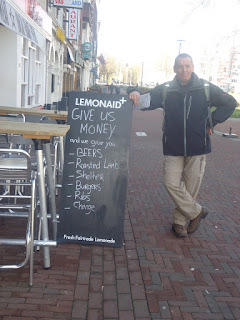 LEMONAID+
GIVE US
MONEY
and we give you
- BEERS
- Roasted Lamb
- Shelter
- Burgers
- Ribs
- Change
Fresh Fairtrade Lemonade